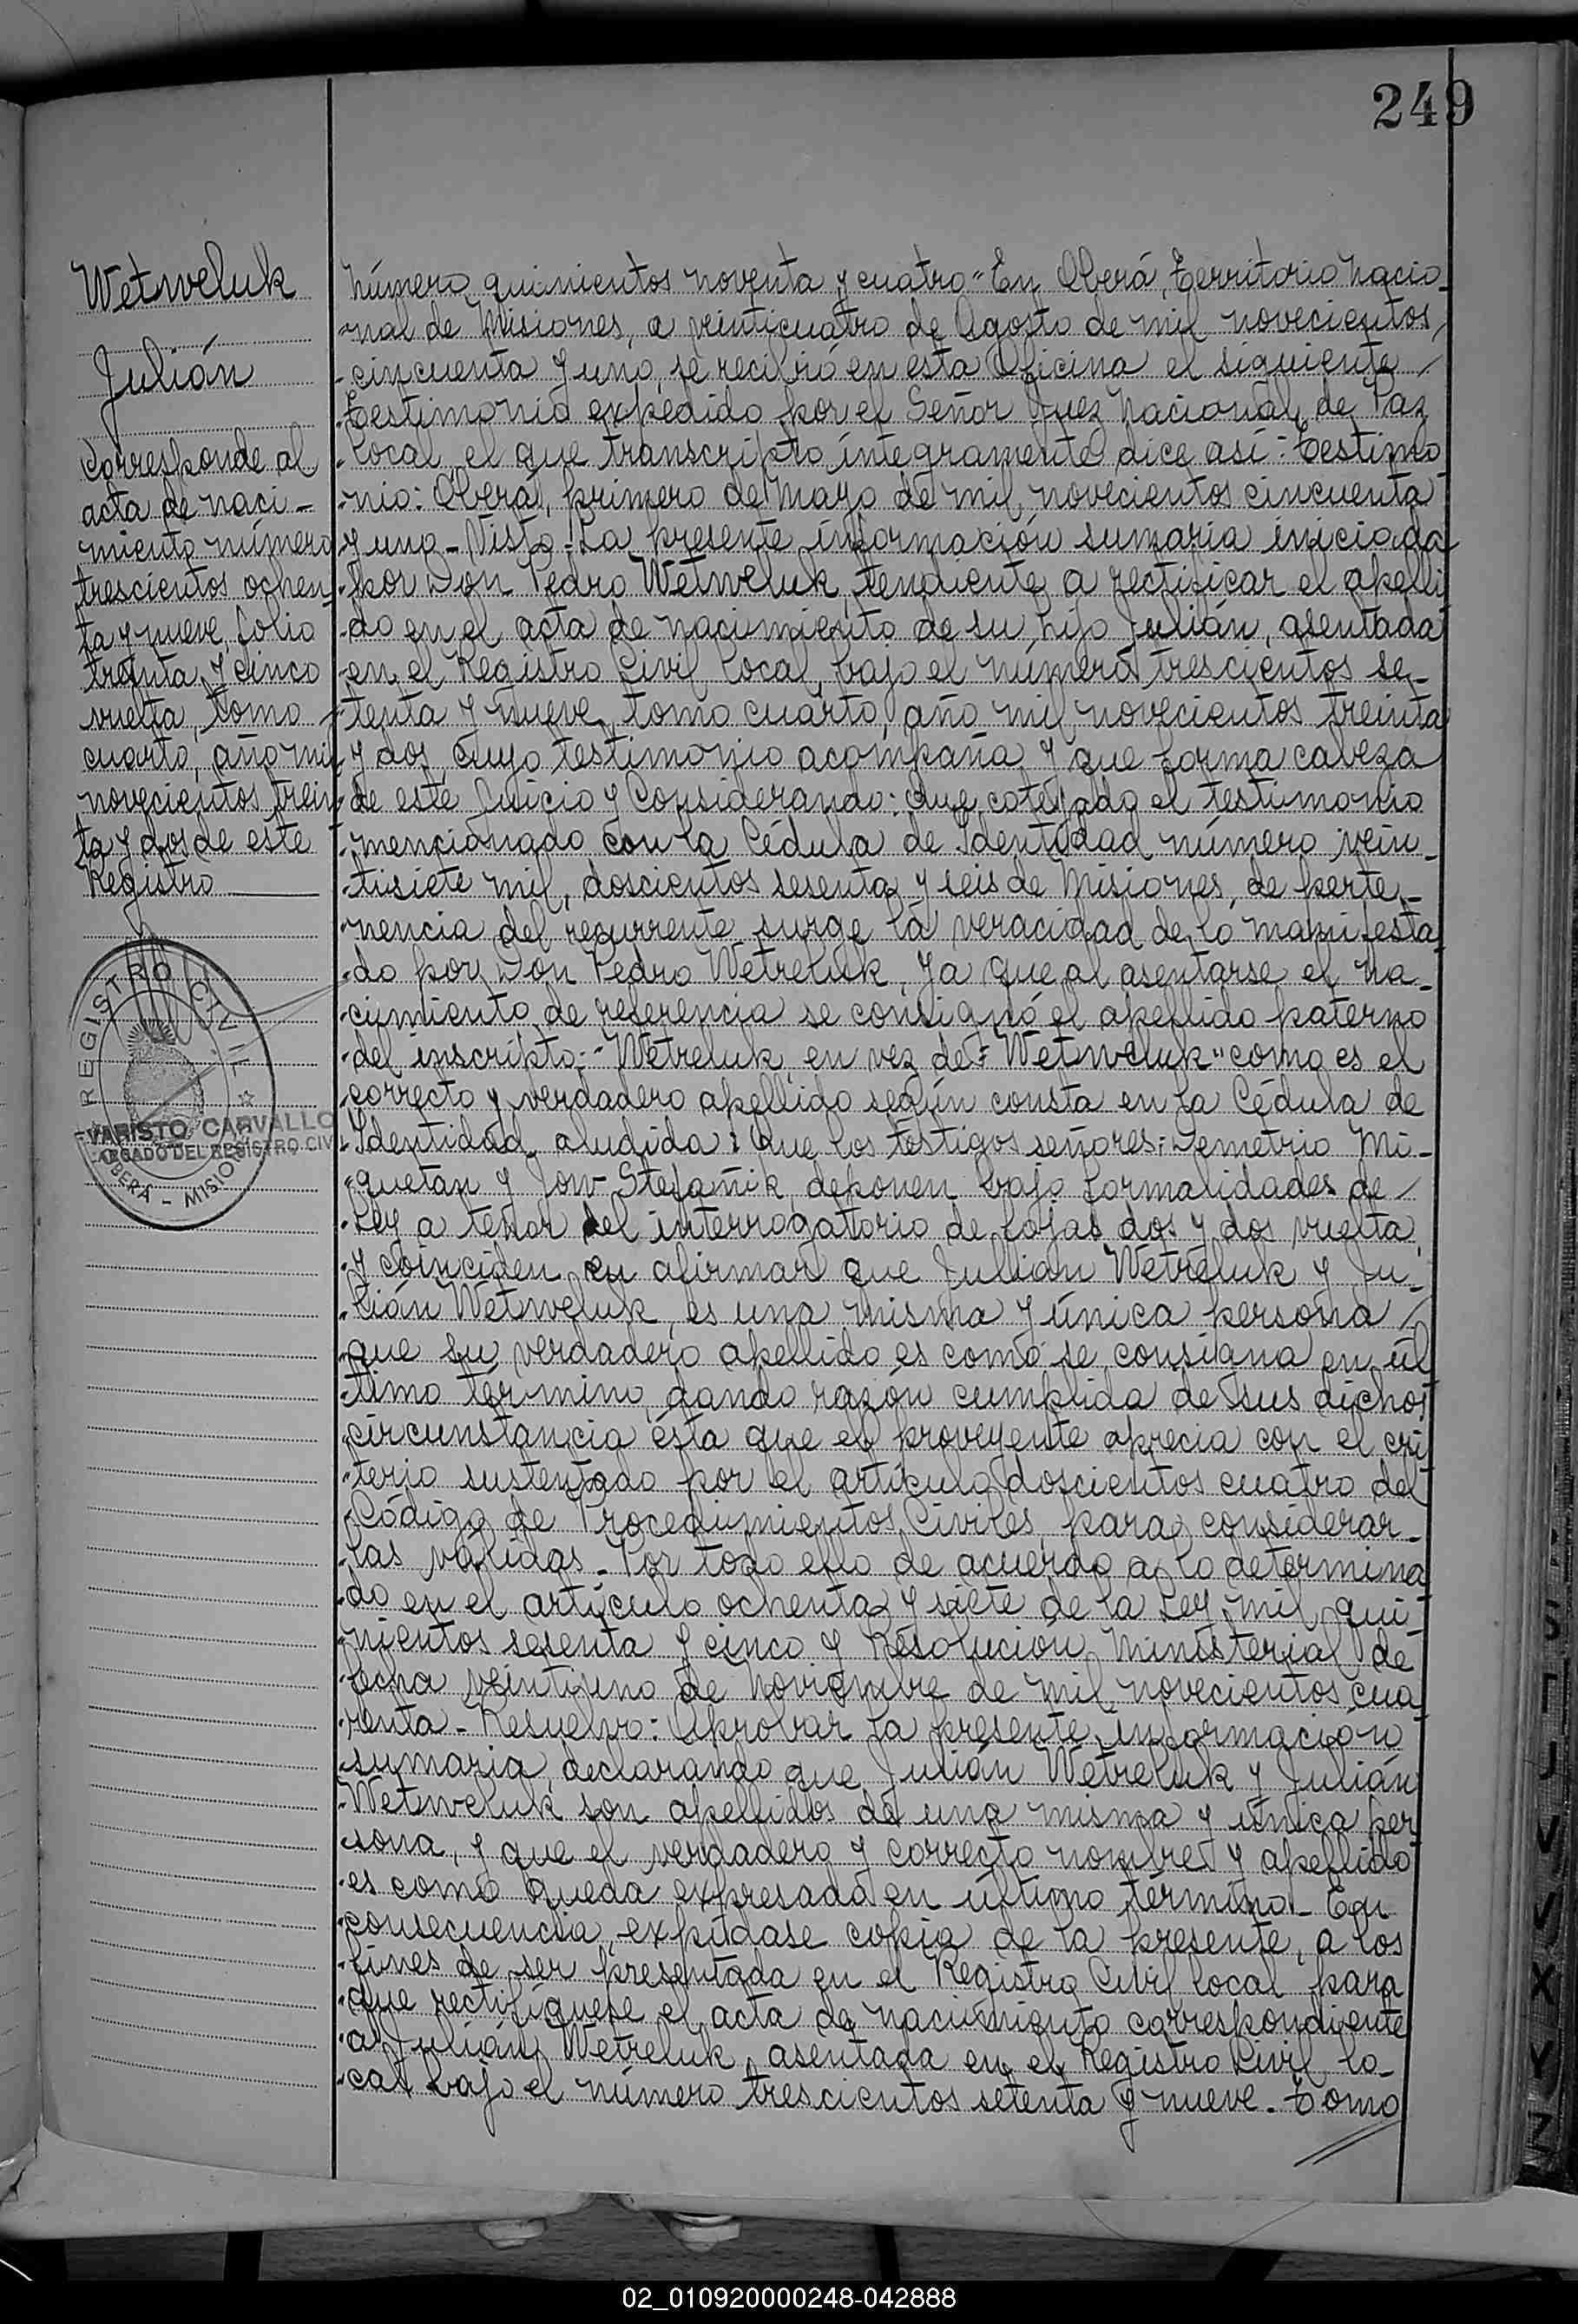 249
Wetweluk
Julián
Corresponde al
acta de naci-
miento número
trescientos ochen-
ta y nueve, folio
treinta y cinco
vuelta, tomo
cuarto, año mil
novecientos trein
ta y dos de este
Registro
REGISTRO CIVIL
VARISTO CARVALLO
ARGADO DEL REGISTRO CIV
OBERÁ - MISIONES
Número quinientos noventa y cuatro" En Oberá, Territorio Nacio-
nal de Misiones, a veinticuatro de Agosto de mil novecientos
cincuenta y uno, se recibió en esta Oficina el siguiente
Testimonio expedido por el Señor Juez Nacional de Paz
Local, el que transcripto íntegramente dice así: Testimo
nio: Oberá, primero de Mayo de mil novecientos cincuenta
y uno - Visto - La presente información sumaria iniciada
por Don Pedro Wetweluk, tendiente a rectificar el apelli
do en el acta de nacimiento de su hijo Julián, asentada
en el Registro Civil Local, bajo el número trescientos se-
tenta y nueve, tomo cuarto, año mil novecientos treinta
y dos, cuyo testimonio acompaña y que forma cabeza
de este Juicio y Considerando: Que cotejado el testimonio
mencionado con la Cédula de Identidad número vein-
tisiete mil, doscientos sesenta y seis de Misiones, de perte-
nencia del recurrente surge la veracidad de lo manifesta
do por Don Pedro Wetreluk, ya que al asentarse el na-
cimiento de referencia se consignó el apellido paterno
del inscripto: "Wetreluk, en vez de: "Wetweluk" como es el
correcto y verdadero apellido según consta en la Cédula de
Identidad aludida: Que los testigos señores: Demetrio Mi-
quetan y Jow Stefañik, deponen bajo formalidades de
Ley a tenor del interrogatorio de fojas dos y dos vuelta,
y coinciden en afirmar que Julián Wetreluk y Ju-
lián Wetweluk, es una misma y única persona
que su verdadero apellido es como se consigna en úl
timo término, dando razón cumplida de sus dichos
circunstancia ésta que el proveyente aprecia con el cri
terio sustentado por el artículo doscientos cuatro del
Código de Procedimientos Civiles, para considerar-
las válidas - Por todo ello de acuerdo a lo determina
do en el artículo ochenta y siete de la Ley mil qui-
nientos sesenta y cinco y Resolución Ministerial de
fecha veintiuno de Noviembre de mil novecientos cua
renta - Resuelvo: Aprobar la presente información
sumaria, declarando que Julián Wetreluk y Julián
Wetweluk son apellidos de una misma y única per
sona, y que el verdadero y correcto nombre y apellido
es como queda expresado en último término - En
consecuencia, expídase copia de la presente, a los
fines de ser presentada en el Registro Civil local para
que rectifíquese el acta de nacimiento correspondiente
a Julián Wetreluk, asentada en el Registro Civil lo-
cal bajo el número trescientos setenta y nueve. Tomo
S
T
J
V
V
X
Y
Z
02_010920000248-042888